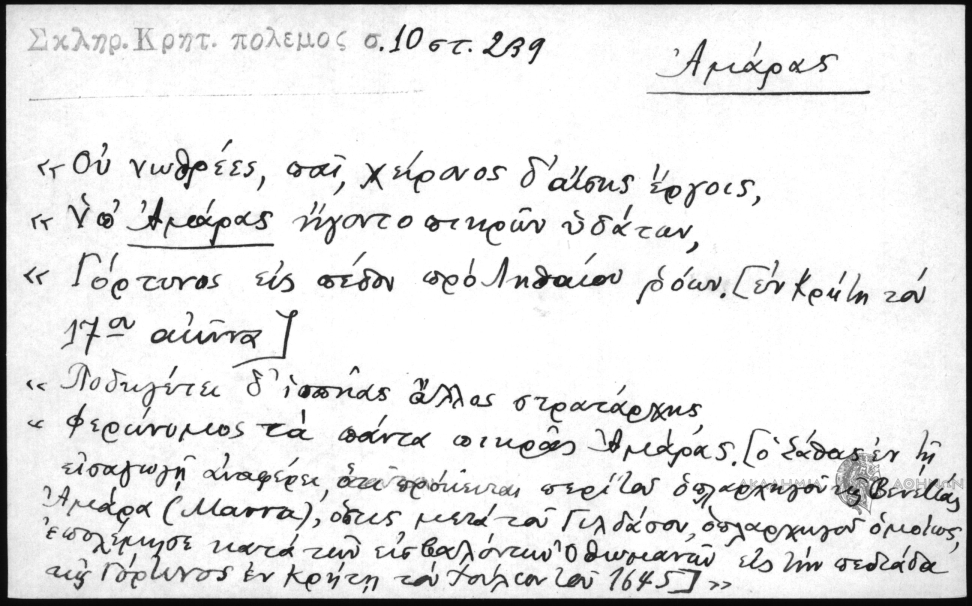 Σκληρ. Κρητ. πολεμος σ. 10 στ. 239
Ἀμάρας
« Οὐ νωθρέες, παῖ, χείρονος δ' αἴσης ἔργοις,
« Ὑπ' Ἀμάρας ἤγοντο πικρῶν ὑδάτων,
« Γόρτυνος εἰς πέδον πρὸ Ληθαίου ῥόων. [ἐν Κρήτῃ τὸν
17ον αἰῶνα]
« Ποδηγέτει δ' ἱππῆας ἄλλος στρατάρχης
« φερώνυμος τὰ πάντα πικρᾶς Ἀμάρας. [ὁ Σάθας ἐν τῇ
εἰσαγωγῇ ἀναφέρει, ὅτι πρόκειται περὶ τοῦ ὁπλαρχηγοῦ τῆς Βενετίας
Ἀμάρα (Marra), ὅστις μετὰ τοῦ Γιλδάσου, ὁπλαρχηγοῦ ὁμοίως,
ἐπολέμησε κατὰ τῶν εἰσβαλόντων Ὀθωμανῶν εἰς τὴν πεδιάδα
τῆς Γόρτυνος ἐν Κρήτῃ τὸν Ἰούλιον τοῦ 1645] »
ΑΚΑΔΗΜΙΑ ΑΘΗΝΩΝ